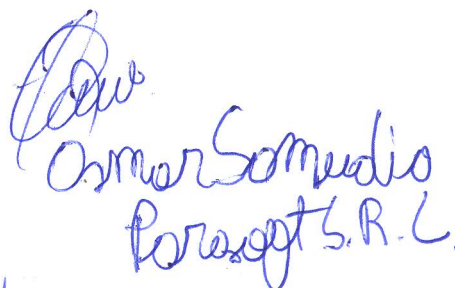 Osmar Somudio
Parasoft S.R.L.